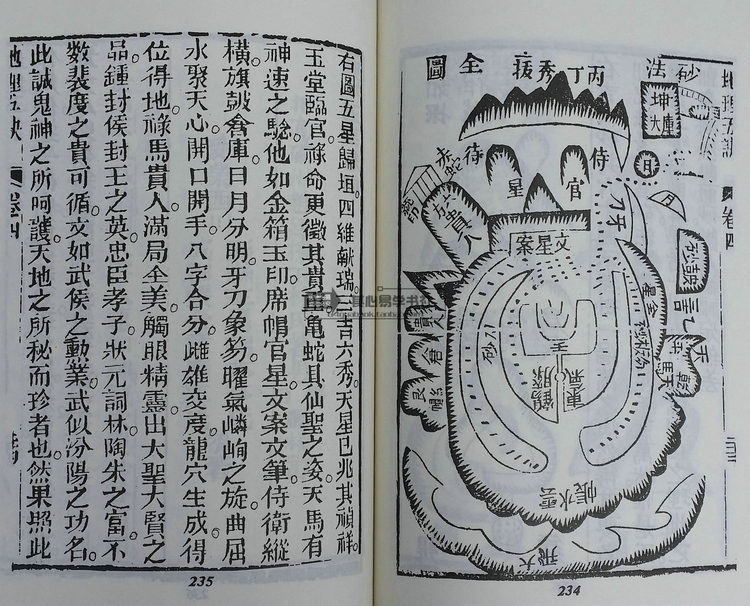 地理五訣
卷四
砂法
全圖
丙丁秀拔
坤庫大
日
月
侍
官
星
侍
赤蛇
印
文星案
貴人
牙刀
砂鼓
金星
天馬
乾
砂刀
貴人
倉
艮
帽
氣東
鶴膝
雲水帳
大飛
234
有圖五星歸垣。四維献瑞。三吉六秀。天星已兆其禎祥。
玉堂臨官。祿命更徵其貴。龜蛇具仙聖之姿。天馬有
神速之騐。他如金箱玉印。席帽官星。文案文筆。侍衛縱
橫。旗皷倉庫。日月分明。牙刀象笏。曜氣嶙峋之旋。曲屈
水聚天心。開口開手。八字合分。雌雄交度。龍穴生成。得
位得地。祿馬貴人。滿局全美。觸眼精靈。出大聖大賢之
品。鍾封侯封王之英。忠臣孝子。狀元詞林。陶朱之富。不
數裴度之貴可循。文如武侯之勳業。武似汾陽之功名。
此誠鬼神之所呵護。天地之所秘而珍者也。然果熙此
地理五訣
卷四
235